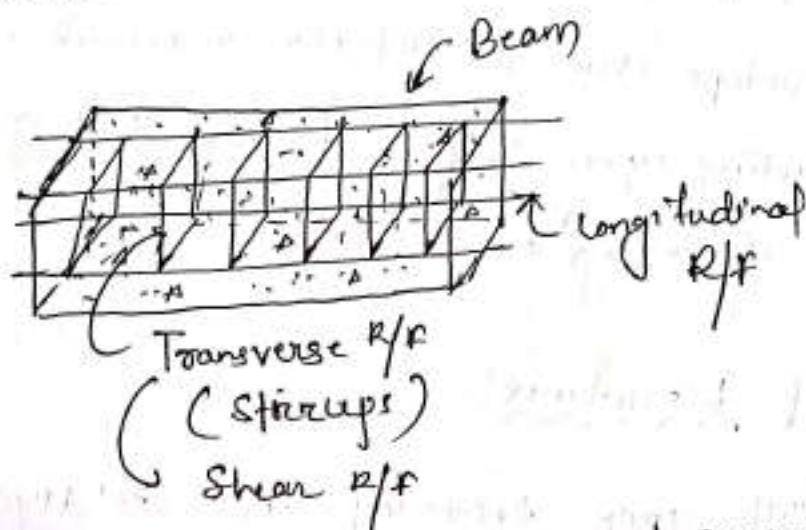 Beam
Longitudinal
R/F
Transverse R/F
(Stirrups)
Shear R/F